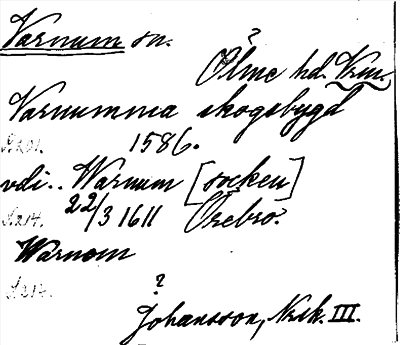 Varnum sn.
?
Ölme hd. Vrm.
Varnumma skogsbygd
1586.
vdi.. Warnum [socken]
22/3 1611 Örebro.
Warnom
?
Johansson, Nrik. III.